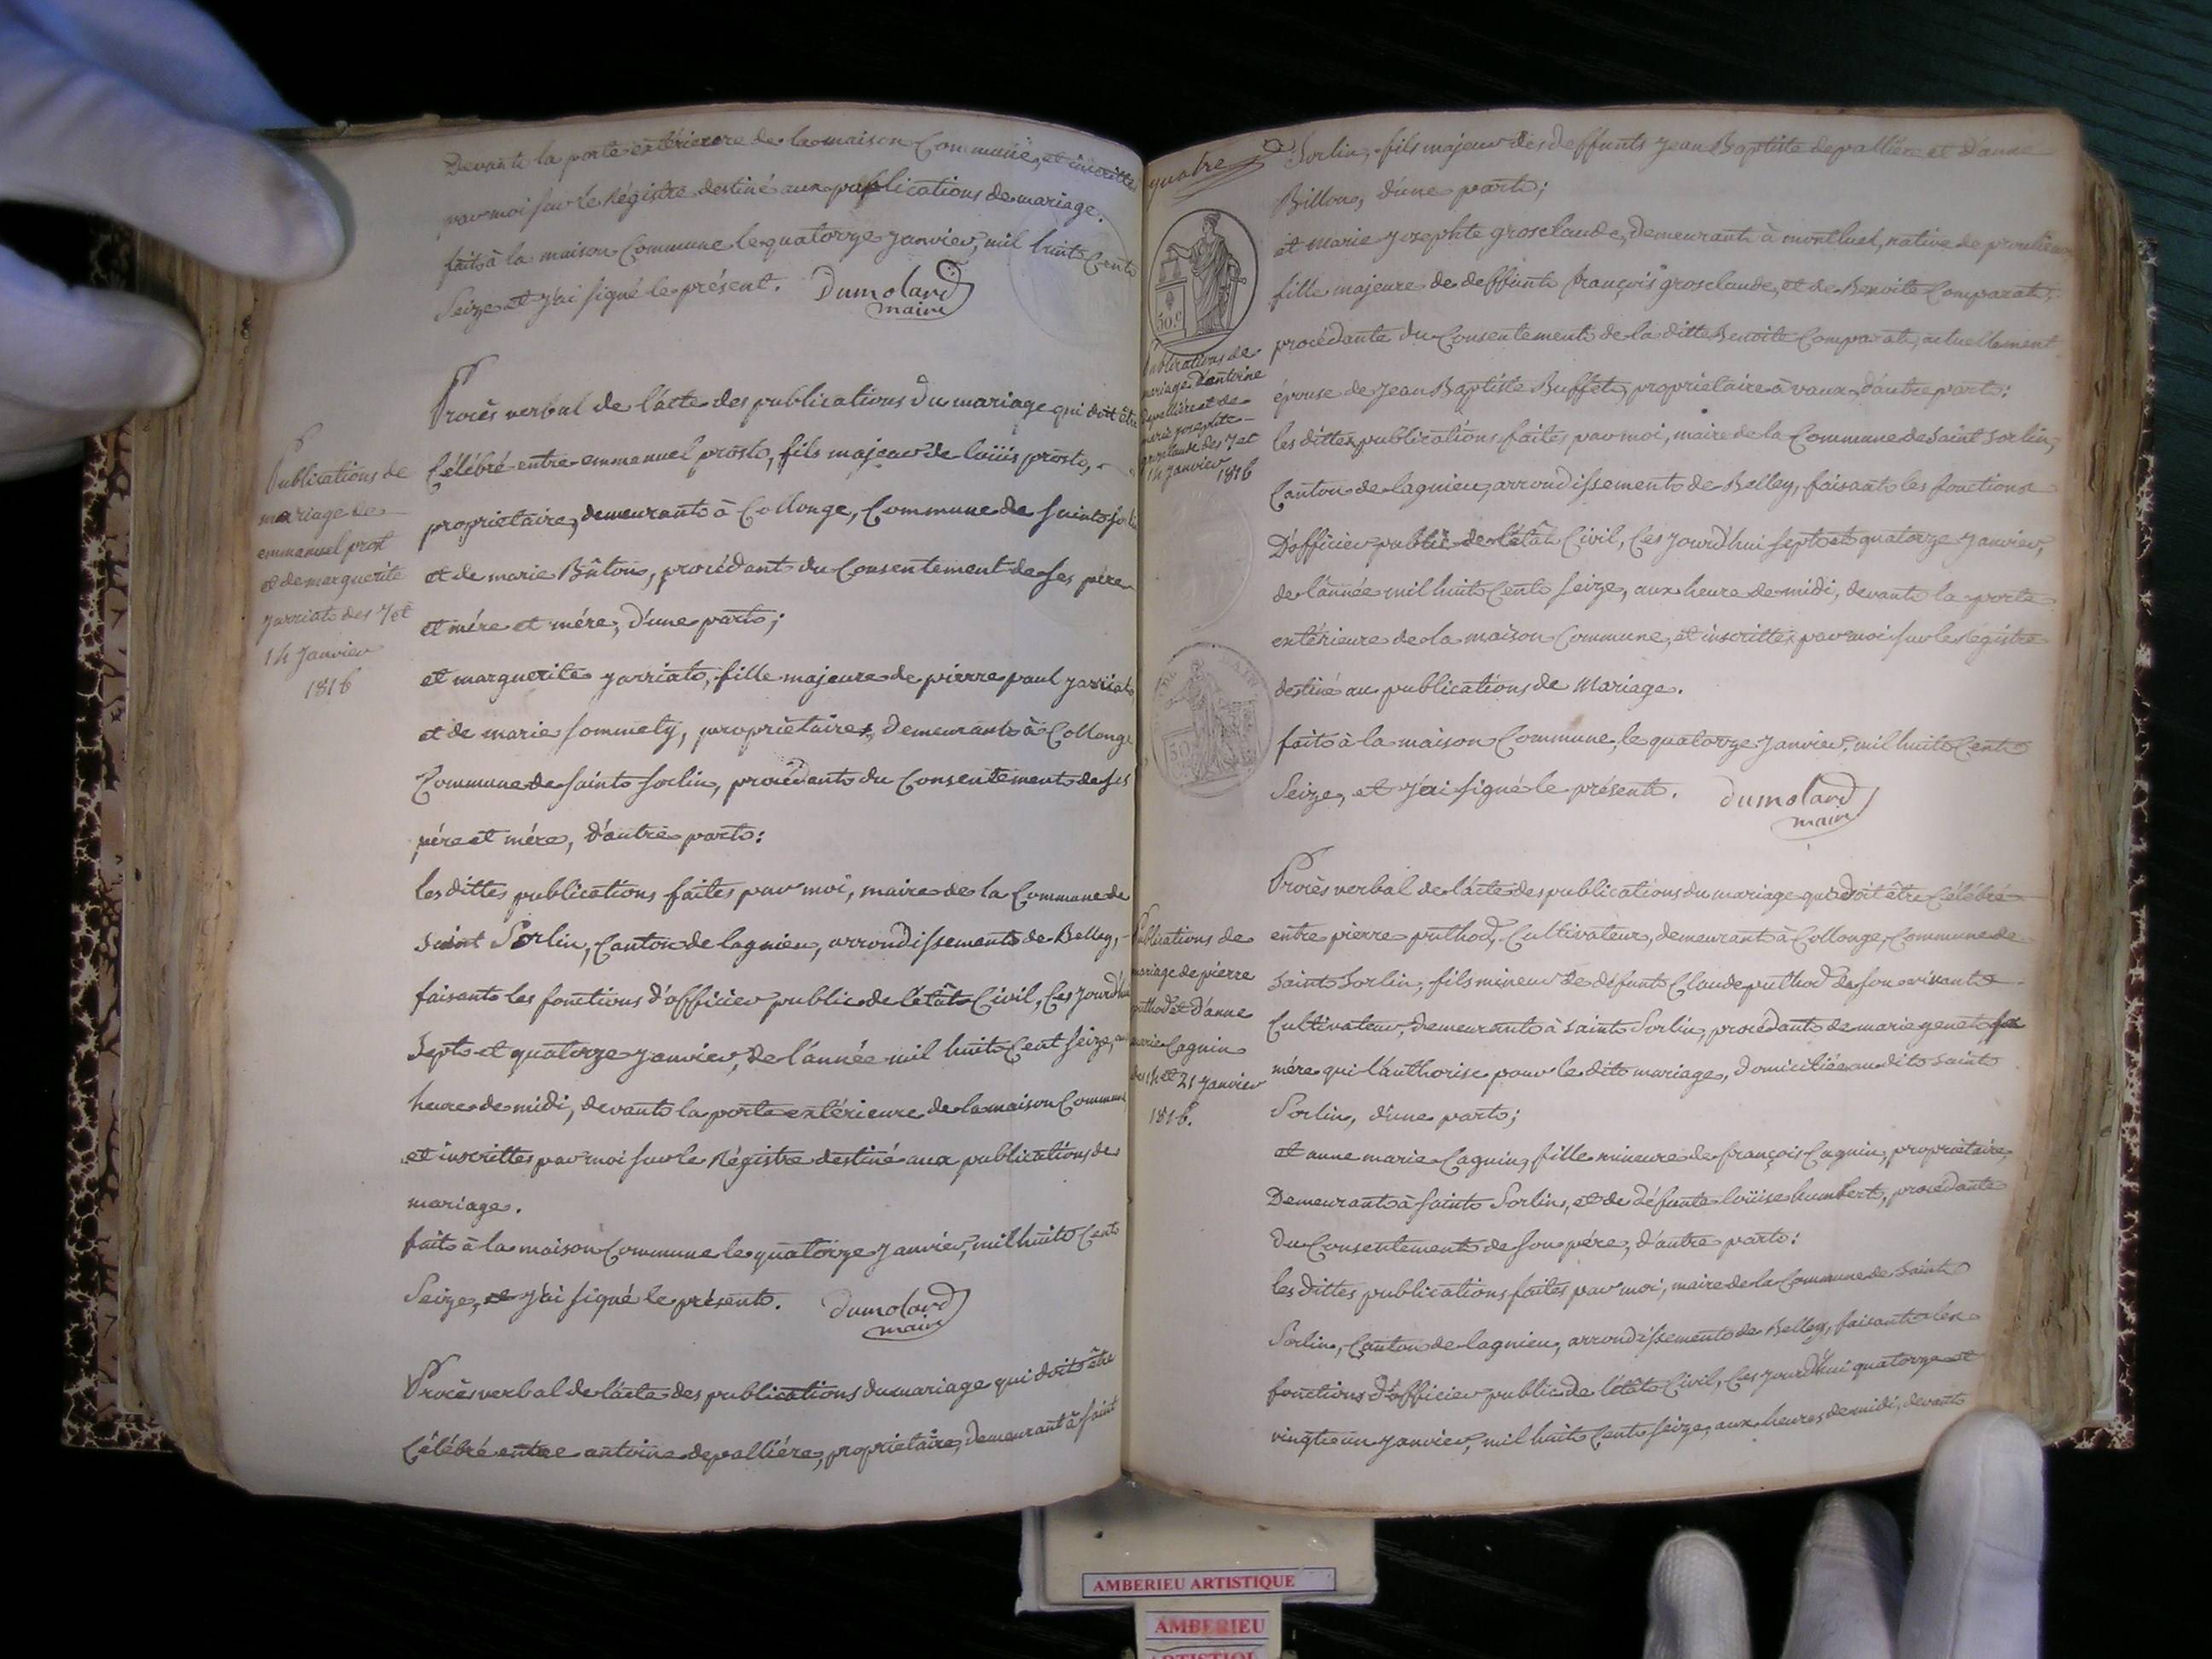 Devant la porte extérieure de la maison Commune, et inscrittes
par moi sur le Régistre destiné aux publications de mariage.
fait à la maison Commune le quatorze janvier, mil huit Cent
Seize et j'ai signé le présent. Dumolard
maire
Publications de
mariage de
emmanuel prost
et de marguerite
jarriat des 7 et
14 janvier
1816
Procès verbal de l'acte des publications du mariage qui doit être
Célébré entre emmanuel prost, fils majeur de loüis prost,
propriétaire, demeurant à Collonge, Commune de saint
et de marie Bûton, procédant du Consentement de ses père
et mére et mére, d'une part;
et marguerite jarriat, fille majeure de pierre paul jarriat
et de marie sommety, propriétaires, demeurant à Collonge
Commune de saint sorlin, procédant du Consentement de ses
pére et mére, d'autre part:
les dittes publications faites par moi, maire de la Commune de
Saint Sorlin, Canton de lagnieu, arrondissement de Belley,
faisant les fonctions d'officier public de l'état Civil, Ces jourd'hui
Sept et quatorze janvier, de l'année mil huit Cent seize,
heure de midi, devant la porte extérieure de la maison Commune
et inscrittes par moi sur le Régistre destiné aux publications de
mariage.
fait à la maison Commune le quatorze janvier, mil huit Cent
Seize, et j'ai signé le présent. Dumolard
maire
Procès verbal de l'acte des publications du mariage qui doit être
Célébré entre antoine depalliére, propriétaire, demeurant à saint
quatre
50.c
Publications de
mariage d'antoine
depalliére et de
marie josephte
grosclaude des 7 et
14 janvier 1816
Sorlin, fils majeur des deffunts jean Baptiste depalliére et d'anne
Billon, d'une part;
et marie josephte grosclaude, demeurant à montluel, native de
fille majeure de deffunt françois grosclaude, et de Benoite Comparat,
procédante du Consentement de la ditte Benoite Comparat, actuellement
épouse de jean Baptiste Buffet, propriétaire à vaux, d'autre part:
les dittes publications faites par moi, maire de la Commune de saint sorlin,
Canton de lagnieu, arrondissement de Belley, faisant les fonctions
D'officier public de l'état Civil, Ces jourd'hui sept et quatorze janvier,
de l'année mil huit Cent seize, aux heure de midi, devant la porte
extérieure de la maison Commune, et inscrittes par moi sur le Régistre
destiné au publications de Mariage.
fait à la maison Commune, le quatorze janvier, mil huit Cent
Seize, et j'ai signé le présent. dumolard
maire
Publications de
mariage de pierre
puthod et d'anne
marie Cagnin
des 14 et 21 janvier
1816.
Procès verbal de l'acte des publications du mariage qui doit être Célébré
entre pierre puthod, Cultivateur, demeurant à Collonge, Commune de
saint Sorlin, fils mineur de défunt Claude puthod de son vivant
Cultivateur, demeurant à saint Sorlin, procédant de marie genet sa
mére qui l'authorise pour le dit mariage, domiciliée au dit saint
Sorlin, d'une part;
et anne marie Cagnin, fille mineure de françois Cagnin, propriétaire,
Demeurant à saint Sorlin, et de défunte loüise humbert, procédante
du Consentement de son pére, d'autre part:
les dittes publications faites par moi, maire de la Commune de saint
Sorlin, Canton de lagnieu, arrondissement de Belley, faisant les
fonctions d'officier public de l'état Civil, Ces jourd'hui quatorze et
vingt un janvier, mil huit Cent seize, aux heures de midi, devant
AMBERIEU ARTISTIQUE
AMBERIEU
ARTISTIQUE